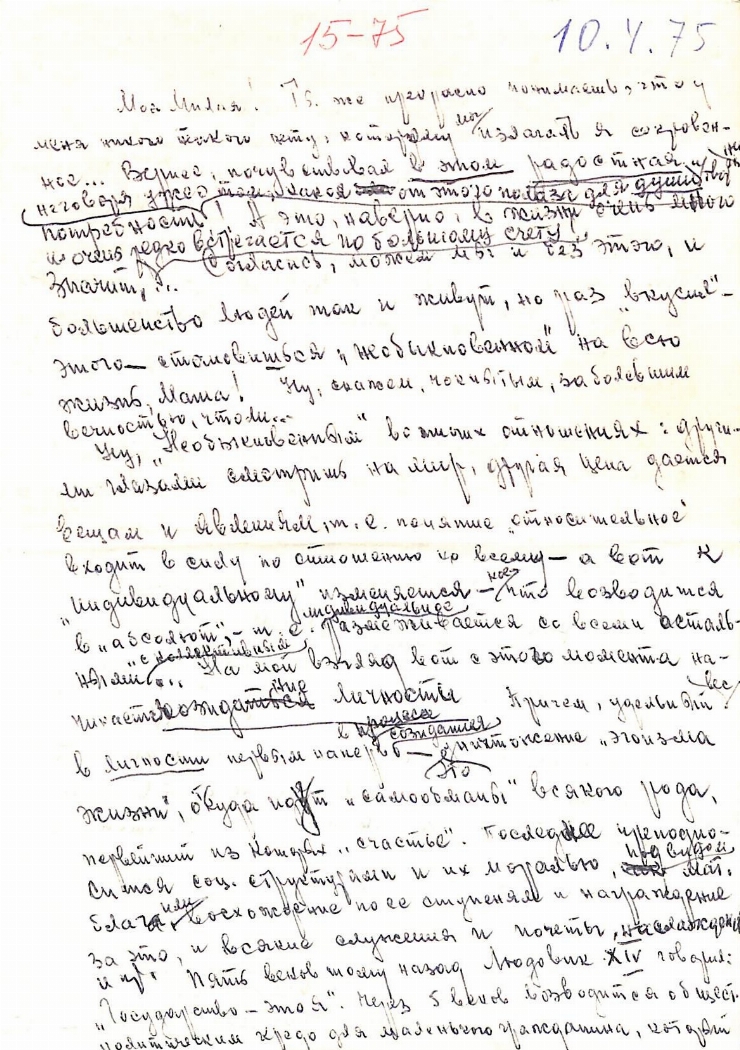 15-75 10.V.75
Моя Милая! Ты же прекрасно понимаешь, что у
меня никого такого нету, которому мог излагать я сокровен-
ное... Вернее, почувствовал в этом радостная
не говоря уже о том, какая от этого польза для души
потребность! А это, наверно, в жизни очень много
и очень редко встречается по большому счету
Значит,... Согласись, можем мы и без этого, и
большенство людей так и живут, но раз "вкусил"
этого — становишься "необыкновенном" на всю
жизнь, Маша! Ну, скажем, чокнутым, заболевшим
вечностью, что ли...
Ну, "Необыкновенным" в отношениях: други-
ми глазами смотришь на мир, другая цена дается
вещам и явлениям, т. е. понятие "относительное"
входит в силу по отношению ко всему — а вот к
"индивидуальному" изменяется — кое-что возводится
в "абсолют", — т. е. индивидуальное размеживается со всеми осталь-
ными "с коллективным"... На мой взгляд вот с этого момента на-
чинается созидание личности Причем, удельный вес
в личности первым наперво — в процессе созидания это уничтожение "эгоизма
жизни", откуда идут и "самообманы" всякого рода,
первейший из которых "счастье". Последнее преподно-
сится соц. структурами и их моралью, под видом мат.
благ или восхождение по ее ступеням и награждение
за это, и всякие служения и почеты, наслаждения
и пр. Пять веков тому назад Людовик XIV говорил:
"Государство — это я". Через 5 веков возводится общест.
политическим кредо для маленького гражданина, который